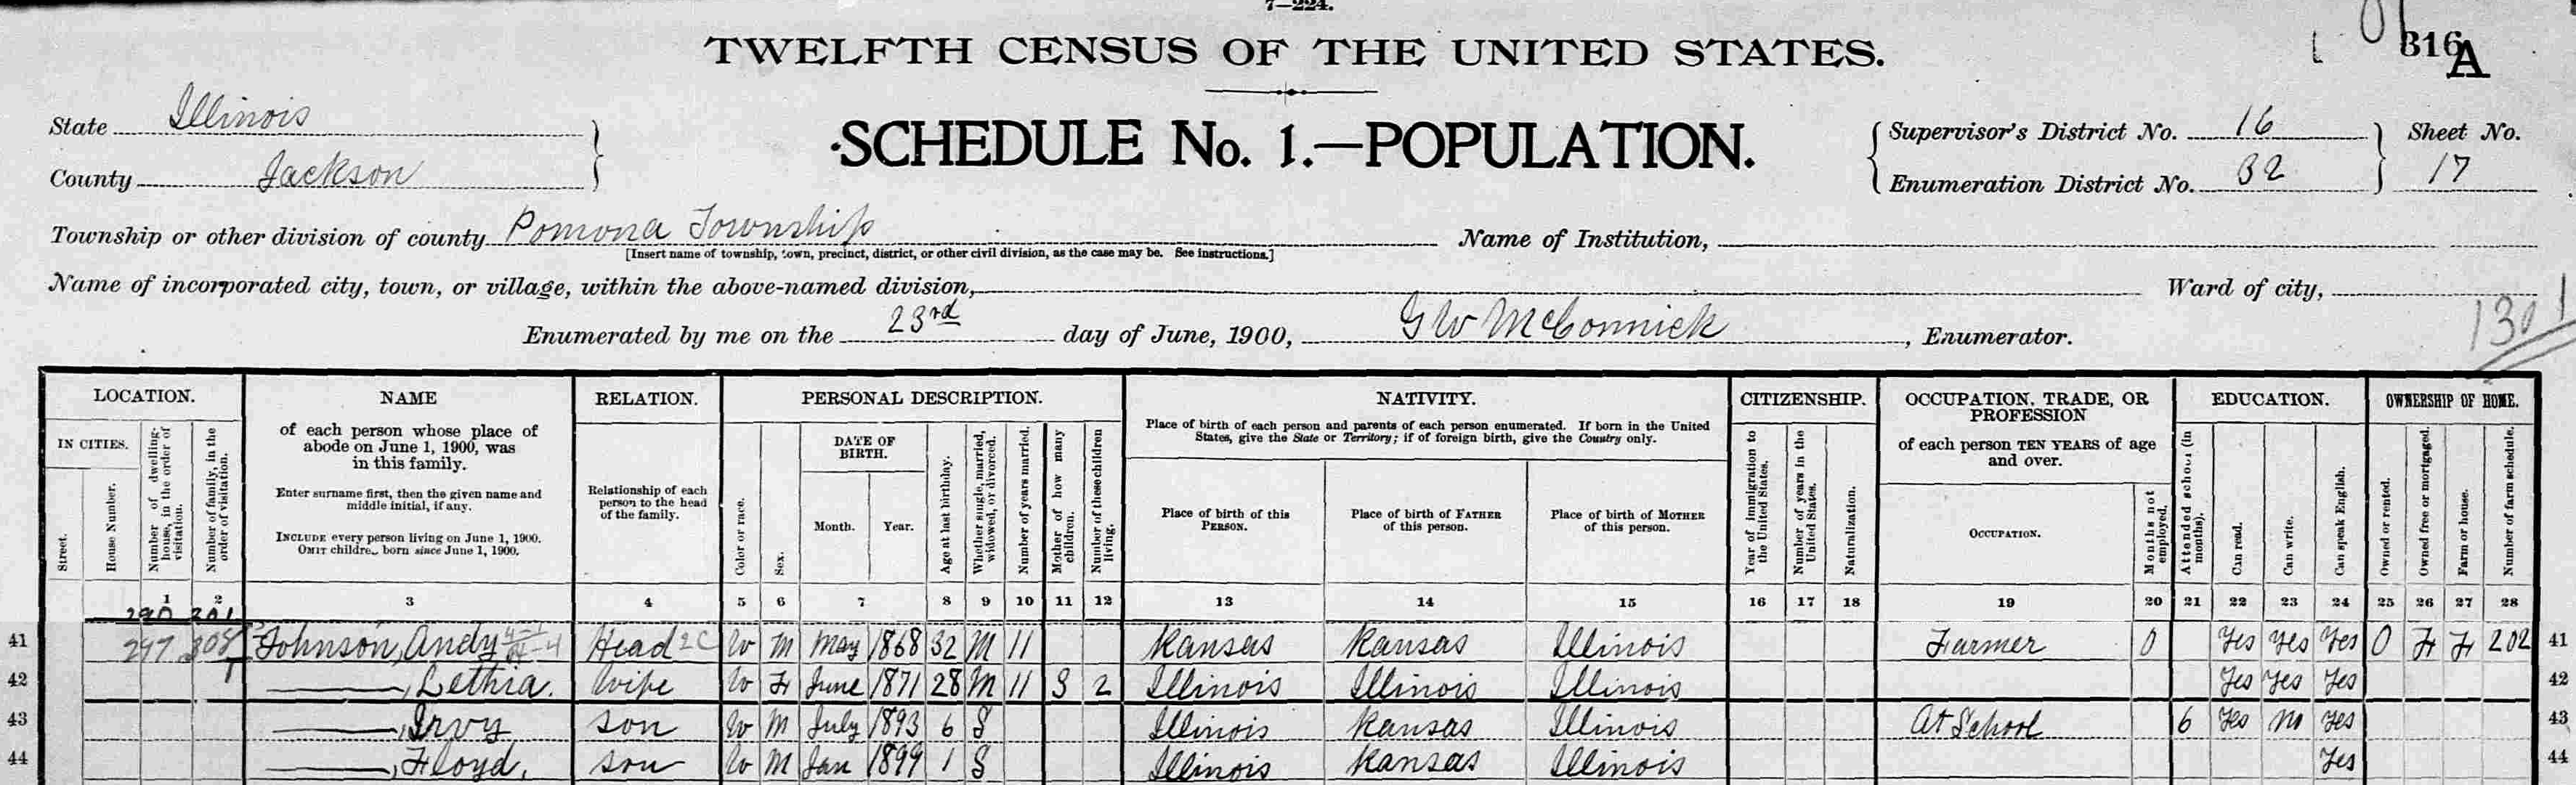 7—224.
TWELFTH CENSUS OF THE UNITED STATES.
316 A
State Illinois
County Jackson
SCHEDULE No. 1.—POPULATION.
Supervisor's District No. 16
Enumeration District No. 32
Sheet No.
17
Township or other division of county Pomona Township
[Insert name of township, town, precinct, district, or other civil division, as the case may be. See instructions.]
Name of Institution,
Name of incorporated city, town, or village, within the above-named division,
Ward of city,
Enumerated by me on the 23rd day of June, 1900, G W McConnick, Enumerator.
1301
LOCATION.
IN CITIES.
Street.
House Number.
Number of dwelling-house, in the order of visitation.
Number of family, in the order of visitation.
NAME
of each person whose place of
abode on June 1, 1900, was
in this family.
Enter surname first, then the given name and
middle initial, if any.
INCLUDE every person living on June 1, 1900.
OMIT children born since June 1, 1900.
RELATION.
Relationship of each
person to the head
of the family.
PERSONAL DESCRIPTION.
Color or race.
Sex.
DATE OF
BIRTH.
Month. Year.
Age at last birthday.
Whether single, married, widowed, or divorced.
Number of years married.
Mother of how many children.
Number of these children living.
NATIVITY.
Place of birth of each person and parents of each person enumerated. If born in the United
States, give the State or Territory; if of foreign birth, give the Country only.
Place of birth of this
PERSON.
Place of birth of FATHER
of this person.
Place of birth of MOTHER
of this person.
CITIZENSHIP.
Year of immigration to the United States.
Number of years in the United States.
Naturalization.
OCCUPATION, TRADE, OR
PROFESSION
of each person TEN YEARS of age
and over.
OCCUPATION.
Months not employed.
EDUCATION.
Attended school (in months).
Can read.
Can write.
Can speak English.
OWNERSHIP OF HOME.
Owned or rented.
Owned free or mortgaged.
Farm or house.
Number of farm schedule.
1 2 3 4 5 6 7 8 9 10 11 12 13 14 15 16 17 18 19 20 21 22 23 24 25 26 27 28
290 301
41 297 308 Johnson, Andy Head W M May 1868 32 M 11 Kansas Kansas Illinois Farmer 0 Yes Yes Yes O F F 202 41
42 ——, Lethia. Wife W F June 1871 28 M 11 3 2 Illinois Illinois Illinois Yes Yes Yes 42
43 ——, Irvy son W M July 1893 6 S Illinois Kansas Illinois At School 6 Yes No Yes 43
44 ——, Floyd, son W M Jan 1899 1 S Illinois Kansas Illinois Yes 44